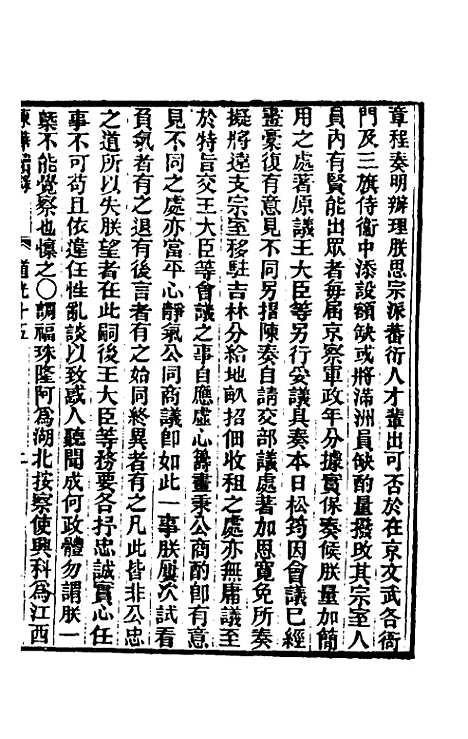 章程奏明辦理朕思宗派蕃衍人才輩出可否於在京文武各衙
門及三旗侍衞中添設額缺或將滿洲員缺酌量撥改其宗室人
員內有賢能出眾者每屆京察軍政年分據實保奏候朕量加簡
用之處著原議王大臣等另行妥議具奏本日松筠因會議已經
畫稾復有意見不同另摺陳奏自請交部議處著加恩寬免所奏
擬將遠支宗室移駐吉林分給地畝招佃收租之處亦無庸議至
於特旨交王大臣等會議之事自應虛心籌畫秉公商酌卽有意
見不同之處亦當平心靜氣公同商議卽如此一事朕屢次試看
負氣者有之退有後言者有之始同終異者有之凡此皆非公忠
之道所以失朕望者在此嗣後王大臣等務要各抒忠誠實心任
事不可苟且依違任性亂談以致惑人聽聞成何政體勿謂朕一
槩不能覺察也懍之〇調福珠隆阿爲湖北按察使興科爲江西
東華續錄 道光十五